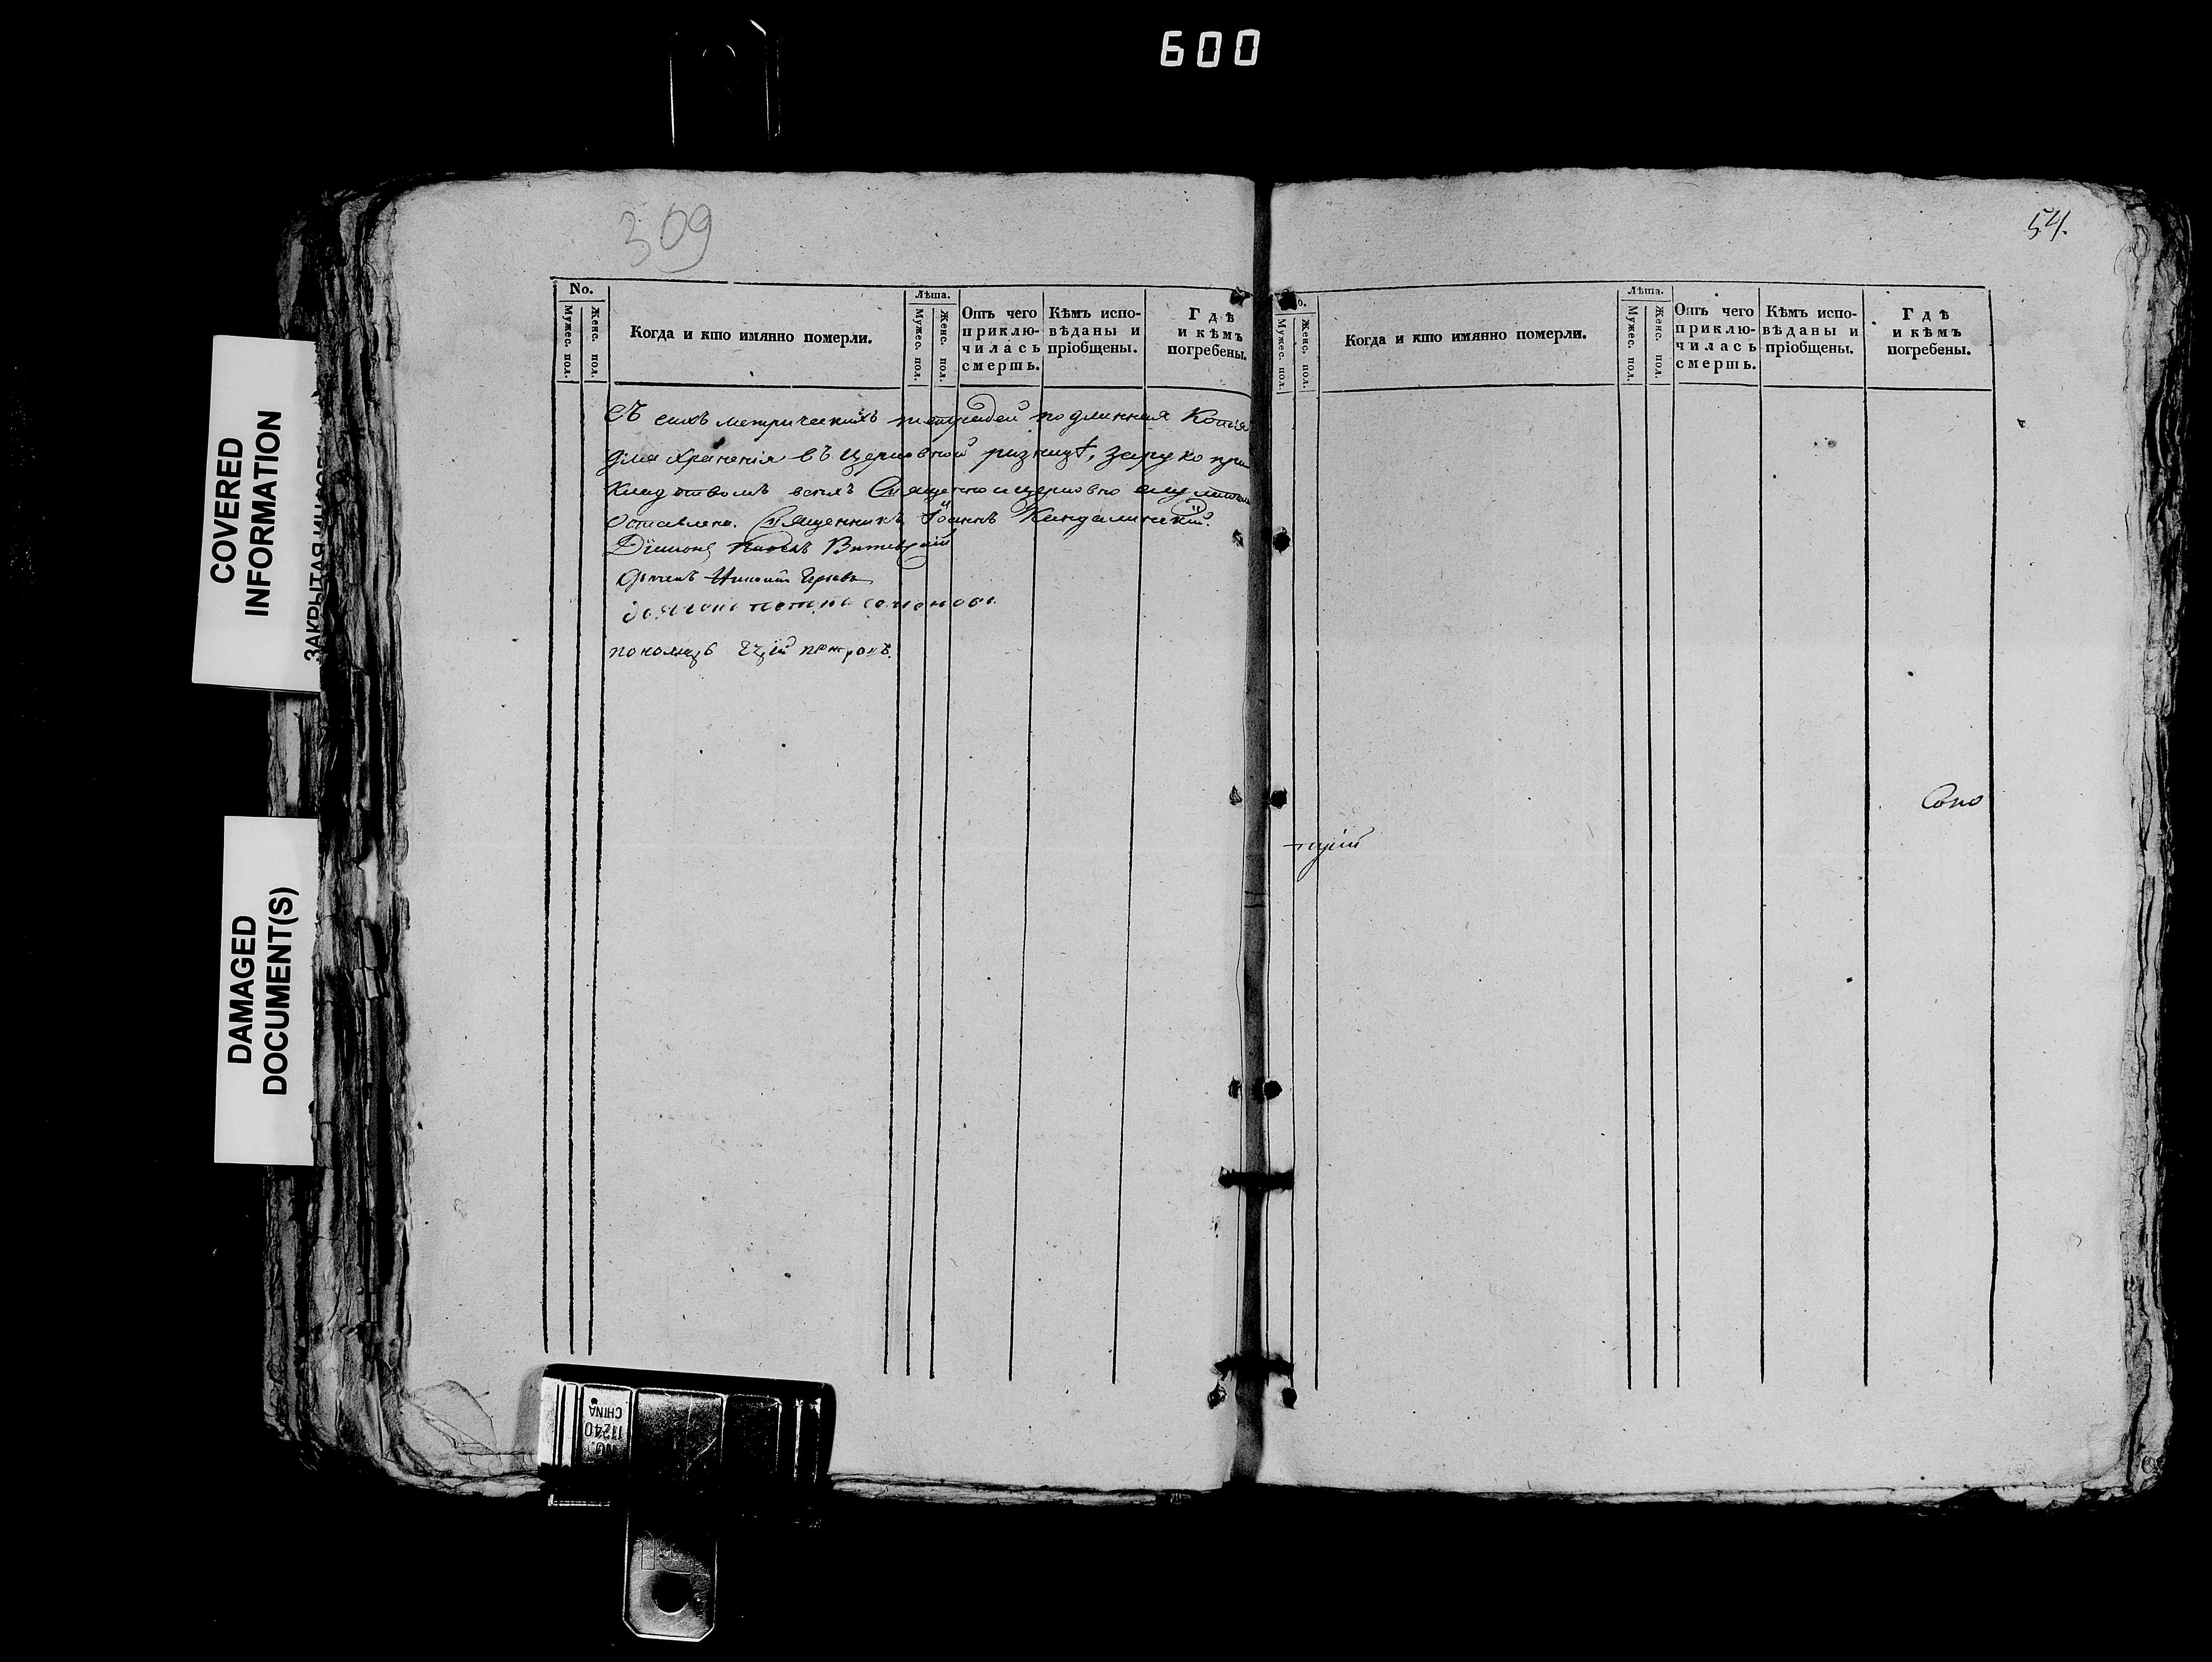 600
COVERED
INFORMATION
DAMAGED
DOCUMENT(S)
309
No.
Мужес. пол.
Женс. пол.
Когда и кто имянно померли.
Лѣта.
Мужес. пол.
Женс. пол.
Отъ чего
приклю-
чилась
смерть.
Кѣмъ испо-
вѣданы и
пріобщены.
Гдѣ
и кѣмъ
погребены.
Съ сихъ метрическихъ тетрадей подлинная Копія
для храненія въ церковной ризницѣ, за руко при
кладствомъ всѣхъ Священно и церковно служителей
оставлена. Священникъ Іоаннъ Кандалинскій.
Діаконъ
дьячекъ
пономарь
NO.
11240
CHINA
54.
Мужес. пол.
Женс. пол.
Когда и кто имянно померли.
Лѣта.
Мужес. пол.
Женс. пол.
Отъ чего
приклю-
чилась
смерть.
Кѣмъ испо-
вѣданы и
пріобщены.
Гдѣ
и кѣмъ
погребены.